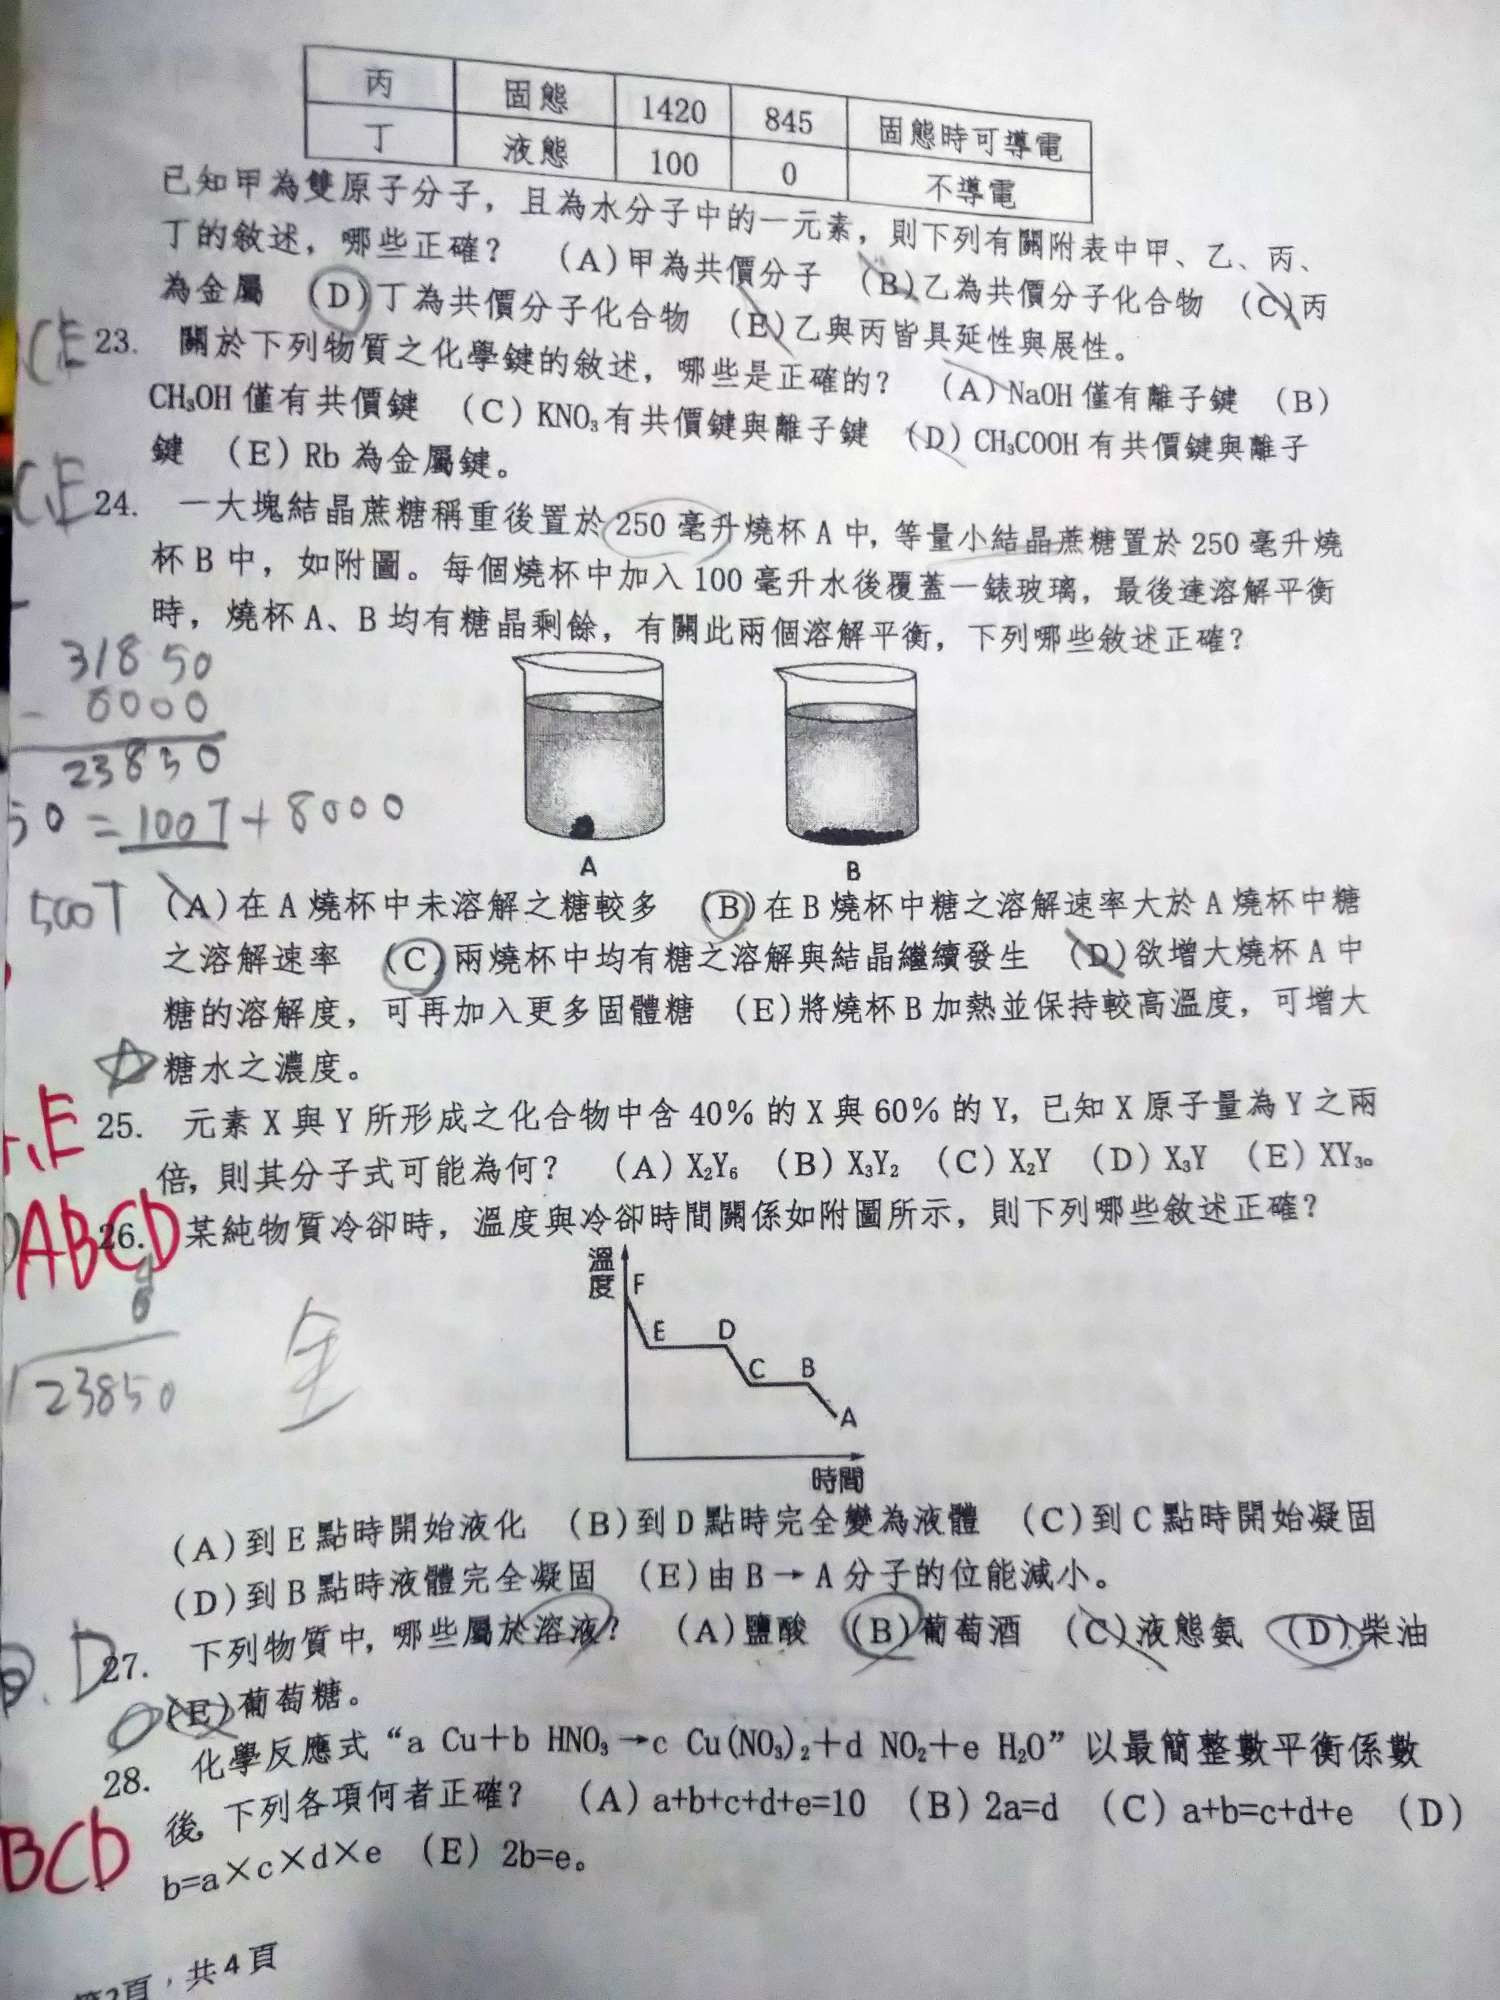 丙 固態 1420 845 固態時可導電
丁 液態 100 0 不導電
已知甲為雙原子分子，且為水分子中的一元素，則下列有關附表中甲、乙、丙、
丁的敘述，哪些正確？ (A)甲為共價分子 (B)乙為共價分子化合物 (C)丙
為金屬 (D)丁為共價分子化合物 (E)乙與丙皆具延性與展性。
C,E 23. 關於下列物質之化學鍵的敘述，哪些是正確的？ (A)NaOH 僅有離子鍵 (B)
CH₃OH 僅有共價鍵 (C)KNO₃有共價鍵與離子鍵 (D)CH₃COOH 有共價鍵與離子
鍵 (E)Rb 為金屬鍵。
C,E 24. 一大塊結晶蔗糖稱重後置於 250 毫升燒杯 A 中，等量小結晶蔗糖置於 250 毫升燒
杯 B 中，如附圖。每個燒杯中加入 100 毫升水後覆蓋一錶玻璃，最後達溶解平衡
時，燒杯 A、B 均有糖晶剩餘，有關此兩個溶解平衡，下列哪些敘述正確？
31850
- 8000
23850
50 = 100T + 8000
500T
A B
(A)在 A 燒杯中未溶解之糖較多 (B)在 B 燒杯中糖之溶解速率大於 A 燒杯中糖
之溶解速率 (C)兩燒杯中均有糖之溶解與結晶繼續發生 (D)欲增大燒杯 A 中
糖的溶解度，可再加入更多固體糖 (E)將燒杯 B 加熱並保持較高溫度，可增大
糖水之濃度。
,E 25. 元素 X 與 Y 所形成之化合物中含 40% 的 X 與 60% 的 Y，已知 X 原子量為 Y 之兩
倍，則其分子式可能為何？ (A)X₂Y₆ (B)X₃Y₂ (C)X₂Y (D)X₃Y (E)XY₃。
ABCD 26. 某純物質冷卻時，溫度與冷卻時間關係如附圖所示，則下列哪些敘述正確？
23850
全
溫度
F
E D
C B
A
時間
(A)到 E 點時開始液化 (B)到 D 點時完全變為液體 (C)到 C 點時開始凝固
(D)到 B 點時液體完全凝固 (E)由 B→A 分子的位能減小。
D 27. 下列物質中，哪些屬於溶液？ (A)鹽酸 (B)葡萄酒 (C)液態氨 (D)柴油
(E)葡萄糖。
28. 化學反應式“a Cu＋b HNO₃→c Cu(NO₃)₂＋d NO₂＋e H₂O”以最簡整數平衡係數
後，下列各項何者正確？ (A)a+b+c+d+e=10 (B)2a=d (C)a+b=c+d+e (D)
BCD b=a×c×d×e (E)2b=e。
頁，共4頁